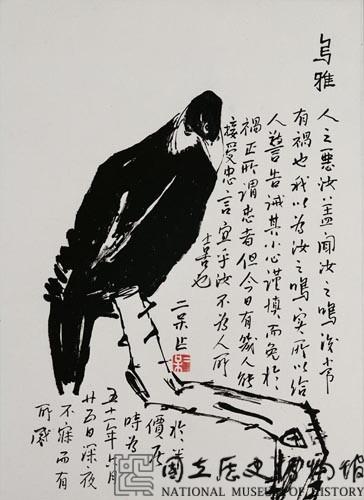 烏雅
人之惡汝蓋聞汝之鳴後常
有禍也我以為汝之鳴實所以給
人警告誡其小心謹慎而免於
禍正所謂忠者但今日有幾人能
接受忠言宜乎汝不為人所
喜也
二呆作
二呆
於
居
時為
五十一年六月
廿五日深夜
不寐而有
所感
國立歷史博物館
NATIONAL MUSEUM OF HISTORY